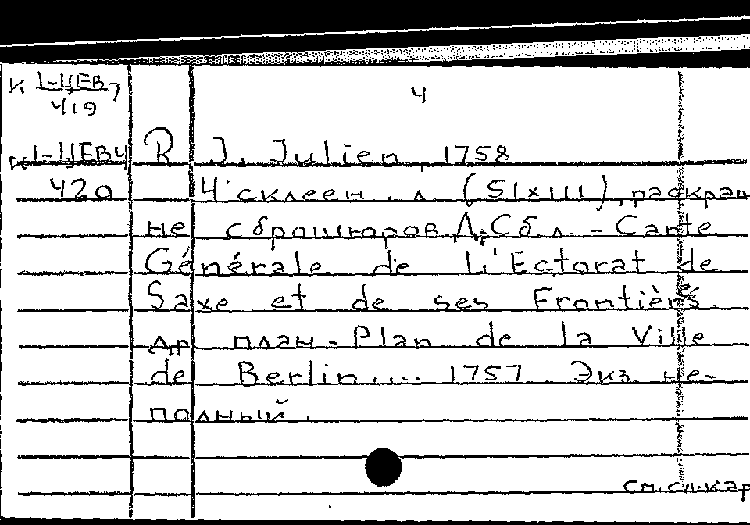 К 1-ЦЕВ7
419
4
К 1-ЦЕВ4 R J. Julien, 1758
420 4 склеен. л (51х111), раскраш
не сброшюров Д. Сб. л - Carte
Générale de L'Ectorat de
Saxe et de ses Frontièrs
др план - Plan de la Ville
de Berlin.... 1757 Экз. не-
полный.
см. сл. кар